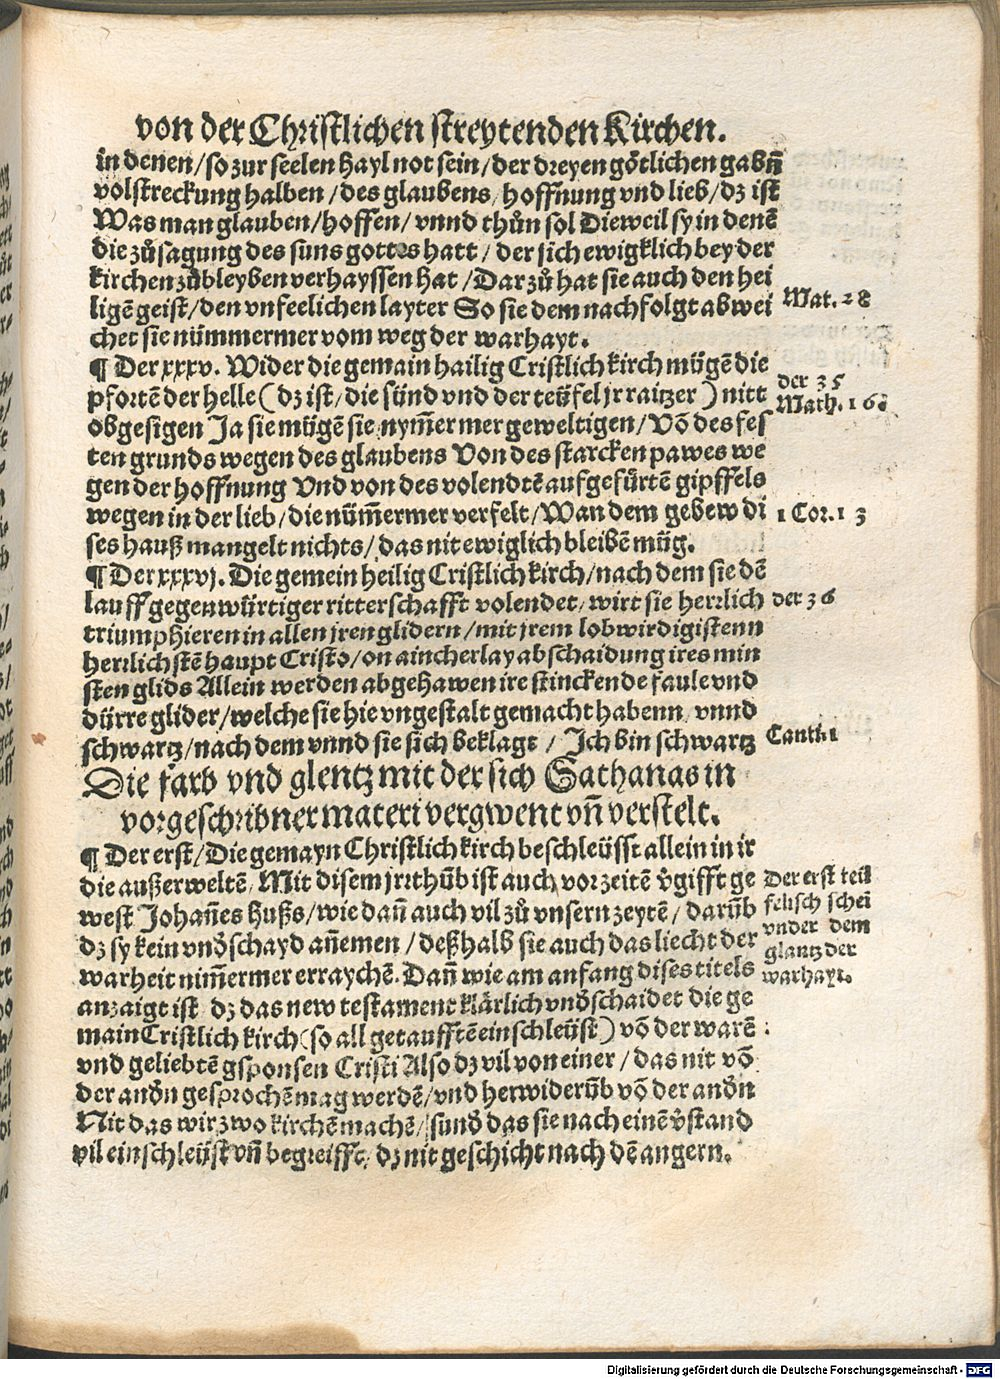 von der Christlichen streytenden Kirchen.
in denen/so zur seelen hayl not sein/der dreyen götlichen gabñ
volstreckung halben/des glaubens/hoffnung vnd lieb/dz ist
Was man glauben/hoffen/vnnd thůn sol Dieweil sy in denē
die zůsagung des suns gottes hatt/der sich ewigklich bey der
kirchen zůbleyben verhayssen hat/Darzů hat sie auch den hei
ligē geist/den vnfeelichen layter So sie dem nachfolgt abwei
chet sie nümmermer vom weg der warhayt.
Mat. 28
¶ Der xxxv. Wider die gemain hailig Cristlich kirch mügē die
pfortē der helle (dz ist/die sünd vnd der teüfel jr raitzer) nitt
obgesigen Ja sie mügē sie nym̄ermer geweltigen/Võ des fes
ten grunds wegen des glaubens Von des starcken pawes we
gen der hoffnung Vnd von des volendtē aufgefürtē gipffels
wegen in der lieb/die nüm̄ermer verfelt/Wan dem gebew di
ses hauß mangelt nichts/das nit ewiglich bleibē müg.
der 35
Math. 16.
1 Cor. 13
¶ Der xxxvj. Die gemein heilig Cristlich kirch/nach dem sie dē
lauff gegenwürtiger ritterschafft volendet/wirt sie herrlich
triumphieren in allen jren glidern/mit jrem lobwirdigistenn
herrlichstē haupt Cristo/on aincherlay abschaidung ires min
sten glids Allein werden abgehawen ire stinckende faule vnd
dürre glider/welche sie hie vngestalt gemacht habenn vnnd
schwartz/nach dem vnnd sie sich beklagt/Ich bin schwartz
der 36
Cant. 1
Die farb vnd glentz mit der sich Sathanas in
vorgeschribner materi vergwent vñ verstelt.
¶ Der erst/Die gemayn Christlich kirch beschleüsst allein in ir
die außerweltē/Mit disem jrrthüb ist auch vorzeitē v̊gifft ge
west Johañes Hußs/wie dañ auch vil zů vnsern zeytē/darüb
dz sy kein vnd̊schayd añemen/deßhalb sie auch das liecht der
warheit nim̄ermer erraychē. Dañ wie am anfang dises titels
anzaigt ist dz das new testament klärlich vnd̊schaidet die ge
main Cristlich kirch (so all getaufftē einschleüst) võ der warē
vnd geliebtē gsponsen Cristi Also dz vil von einer/das nit võ
der and̊n gesprochē mag werdē/vnd herwiderüb võ der and̊n
Nit das wir zwo kirchē machē/sund̊ das sie nach einē v̊stand
vil einschleüst vñ begreifft/dz nit geschicht nach dē angern.
Der erst teil
felisch schei
vnder dem
glantz der
warhayt.
Digitalisierung gefördert durch die Deutsche Forschungsgemeinschaft - DFG